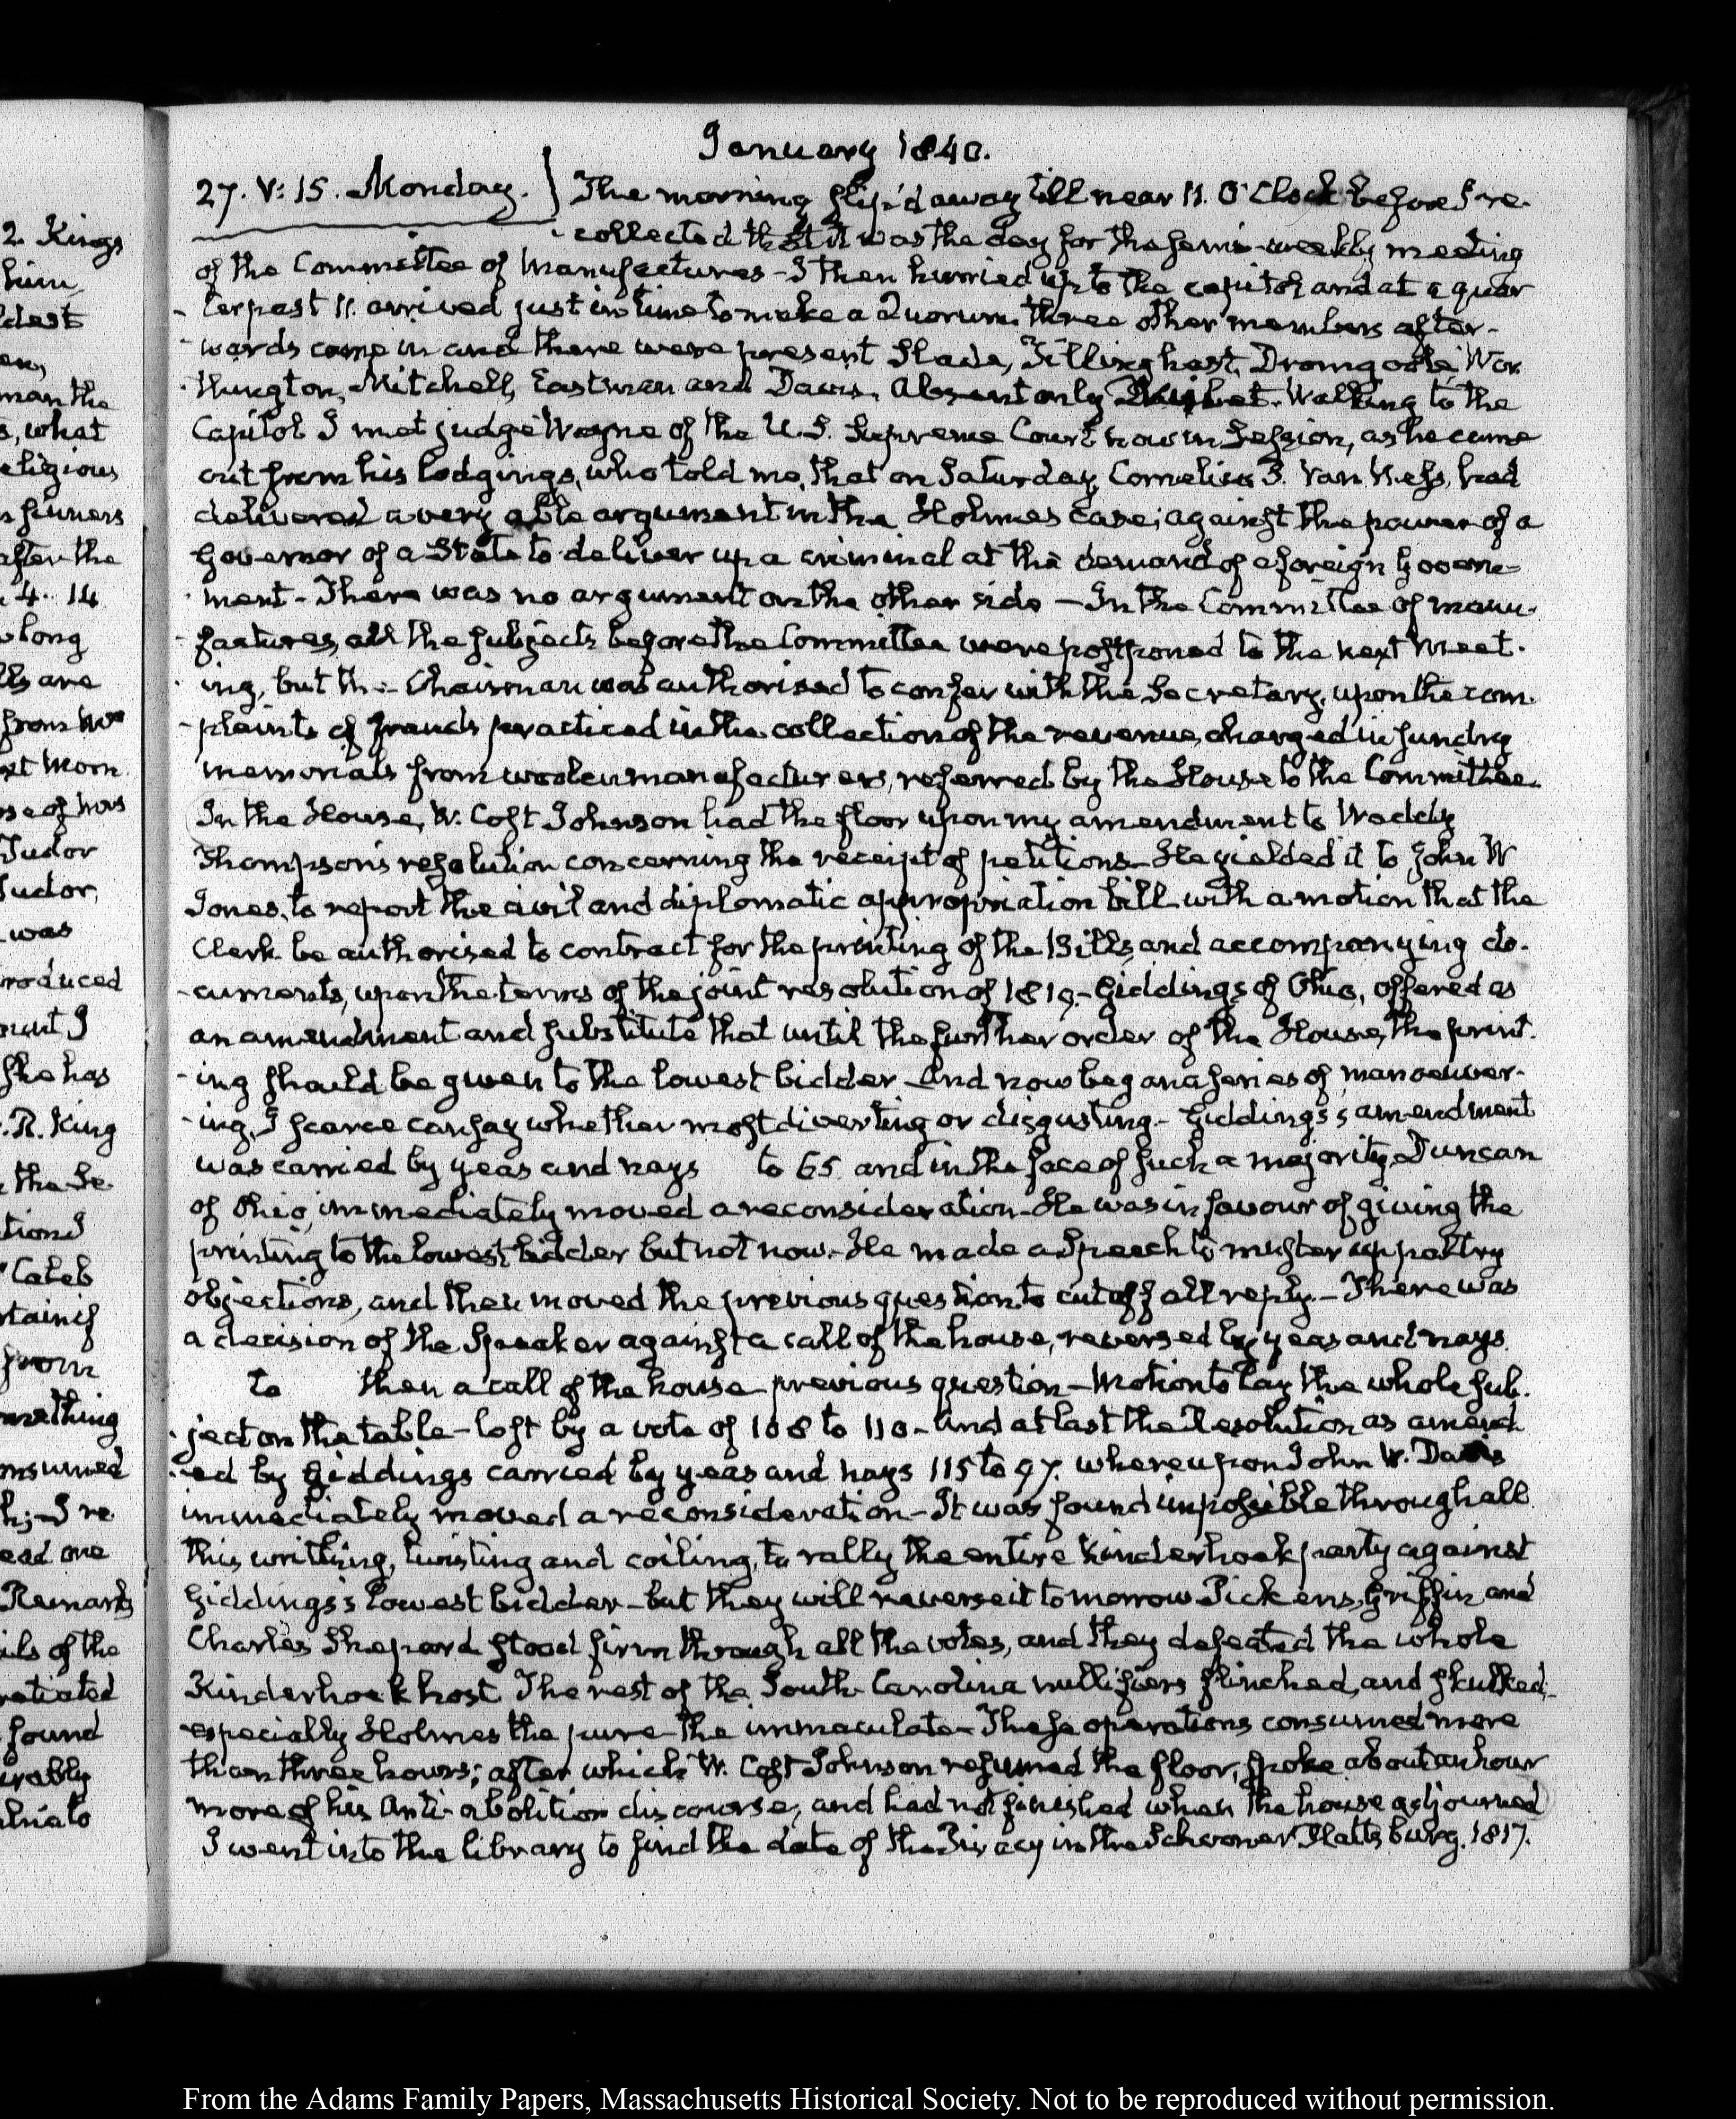 2. Kings
him
dest
en,
man the
s, what
eligious
sinners
after the
4. 14
long
lts are
from Mr
xt Morn
se of his
Tudor
Tudor,
was
roduced
ount I
she has
. R. King
the Se
tion I
Caleb
rtain if
from
mething
onsumed
h; I re
ead one
Remarks
ils of the
retiated
found
erably
January 1840.
27. V: 15. Monday. } The morning slip'd away till near 11. O'Clock before I re-
collected that it was the day for the semi-weekly meeting
of the Committee of Manufactures - I then hurried up to the capitol and at a quar
- ter past 11. arrived just in time to make a Quorum. three other members after-
- wards came in and there were present Slade, Tillinghast, Dromgoole, Wor
- thington, Mitchell, Eastman and Davis. Absent only. Walking to the
Capitol I met judge Wayne of the U.S. Supreme Court now in Session, as he came
out from his lodgings, who told me, that on Saturday, Cornelius P. Van Ness, had
delivered a very able argument in the Holmes case; against the power of a
Governor of a State to deliver up a criminal at the demand of a foreign Govern-
- ment - There was no argument on the other side - In the Committee of manu-
- factures, all the subjects before the Committee were postponed to the next Meet-
- ing, but the Chairman was authorised to confer with the Secretary, upon the com-
- plaints of frauds practiced in the collection of the revenue, charged in sundry
memorials from woolen manufacturers, referred by the House to the Committee.
In the House, W. Cost Johnson had the floor upon my amendment to Waddy
Thompson's resolution concerning the receipt of petitions - He yielded it to John W
Jones, to report the civil and diplomatic appropriation bill with a motion that the
Clerk be authorised to contract for the printing of the Bills, and accompanying do-
- cuments, upon the terms of the joint resolution of 1819 - Giddings of Ohio, offered as
an amendment and substitute that until the further order of the House, the print-
- ing should be given to the lowest bidder - And now began a series of manoeuver-
- ing, I scarce can say whether most diverting or disgusting - Giddings's amendment
was carried by yeas and nays to 65. and in the face of such a majority, Duncan
of Ohio, immediately moved a reconsideration - He was in favour of giving the
printing to the lowest bidder but not now - He made a Speech to muster up paltry
objections, and then moved the previous question to cut off all reply. - There was
a decision of the Speaker against a call of the house, reversed by yeas and nays.
to then a call of the house - previous question - Motion to lay the whole sub-
- ject on the table - lost by a vote of 108 to 110 - And at last the Resolution as amend
- ed by Giddings carried by yeas and nays 115 to 97. whereupon John W. Davis
immediately moved a reconsideration - It was found impossible through all
this writhing, twisting and coiling, to rally the entire Kinderhook party against
Giddings's lowest bidder - but they will reverse it to morrow Pickens, Griffin and
Charles Shepard stood firm through all the votes, and they defeated the whole
Kinderhook host. The rest of the South-Carolina nullifiers flinched, and skulked,
especially Holmes the pure - the immaculate - These operations consumed more
than three hours; after which W. Cost Johnson resumed the floor, spoke about an hour
more of his Anti-abolition discourse, and had not finished when the house adjourned
I went into the library to find the date of the Piracy in the Schooner Plattsburg. 1817.
From the Adams Family Papers, Massachusetts Historical Society. Not to be reproduced without permission.